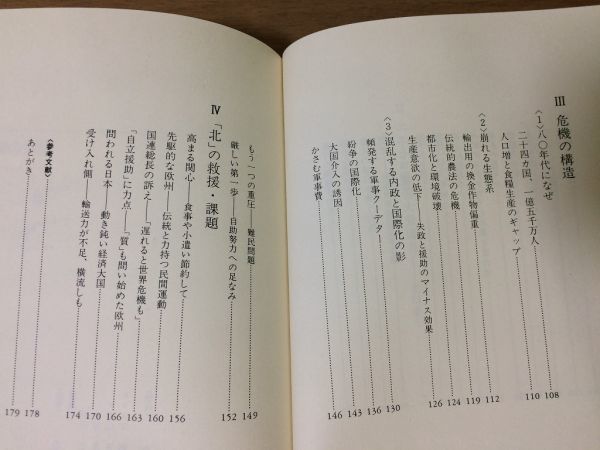 Ⅲ 危機の構造
〈1〉八〇年代になぜ
二十四カ国、一億五千万人 108
人口増と食糧生産のギャップ 110
〈2〉崩れる生態系
輸出用の換金作物偏重 112
伝統的農法の危機 119
都市化と環境破壊 124
生産意欲の低下――失政と援助のマイナス効果 126
〈3〉混乱する内政と国際化の影
頻発する軍事クーデター 130
紛争の国際化 136
大国介入の誘因 143
かさむ軍事費 146
もう一つの重圧――難民問題 149
厳しい第一歩――自助努力への足なみ 152
Ⅳ 「北」の救援・課題
高まる関心――食事や小遣い節約して 156
先駆的な欧州――伝統と力持つ民間運動 160
国連総長の訴え――「遅れると世界危機も」 163
「自立援助」に力点――「質」も問い始めた欧州 166
問われる日本――動き鈍い経済大国 170
受け入れ側――輸送力が不足、横流しも 174
〈参考文献〉 178
あとがき 179